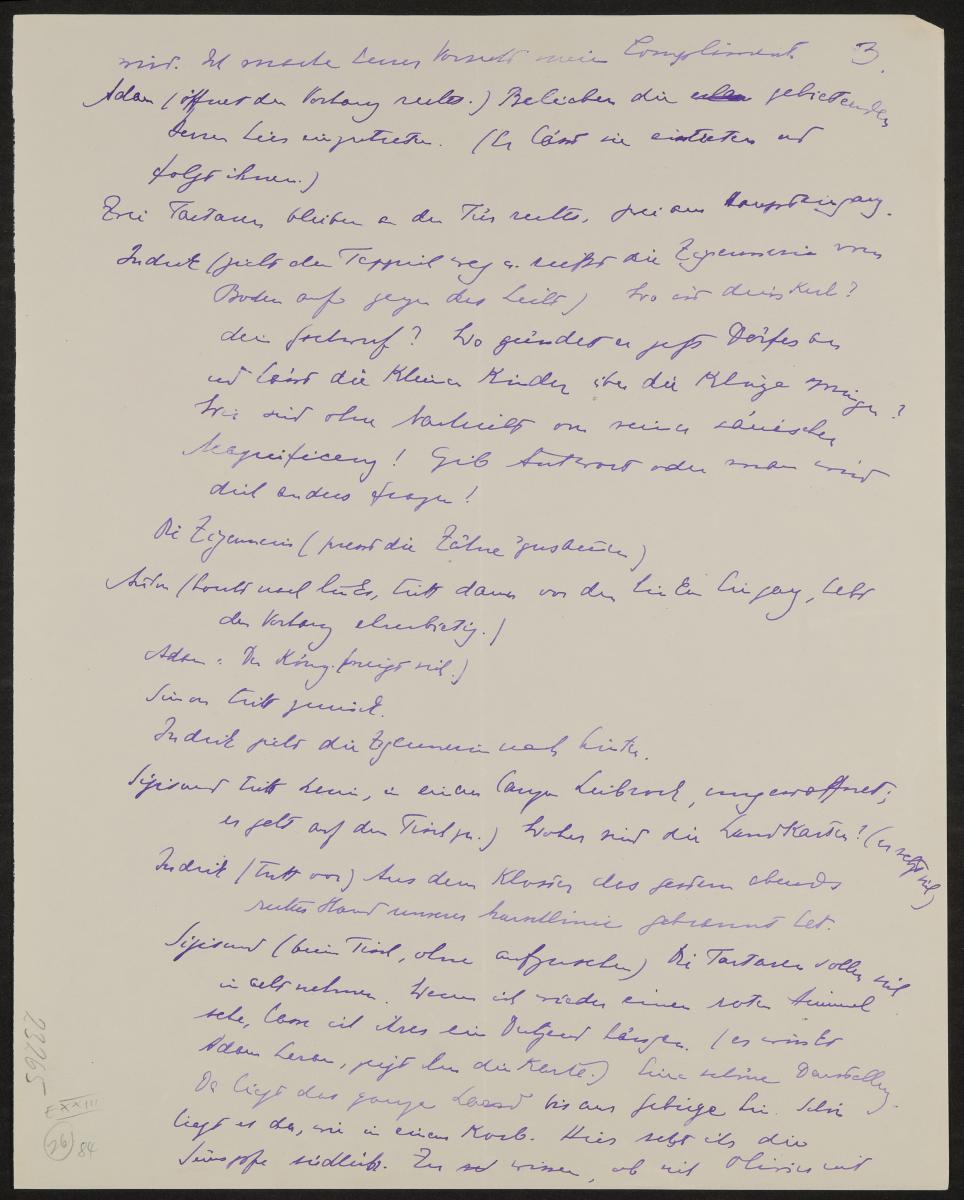 wird. Ich mache Eurer Vorsicht mein Compliment. 3.
Adam (öffnet den Vorhang rechts.) Belieben die gebietenden
Herren hier einzutreten. (Er lässt sie eintreten und
folgt ihnen.)
Zwei Tartaren bleiben an der Tür rechts, zwei am Haupteingang.
Indrik (zieht den Teppich weg u. reisst die Zigeunerin vom
Boden auf gegen das Licht) Wo ist dein Kerl?
dein Wo zündet er jetzt Dörfer an
und lässt die kleinen Kinder über die Klinge springen?
Wir sind ohne Nachricht von seiner säuischen
Magnificenz! Gib Antwort oder man wird
dich anders fragen!
Die Zigeunerin (presst die Zähne zusammen)
Anton (horcht nach links, tritt dann vor den linken Eingang, hebt
den Vorhang ehrerbietig.)
Adam: Der König. (neigt sich.)
Simon tritt zurück.
Indrik zieht die Zigeunerin nach hinten.
Sigismund tritt herein, in einem langen Leibrock, ungewaffnet;
er geht auf den Tisch zu.) Woher sind die Landkarten? (er setzt sich)
Indrik (tritt vor) Aus dem Kloster das gestern abends
rechter Hand unserer Marschlinie gebrannt hat.
Sigismund (beim Tisch, ohne aufzusehen) Die Tartaren sollen sich
in acht nehmen. Wenn ich wieder einen roten Himmel
sehe, lasse ich ihrer ein Dutzend hängen. (er winkt
Adam heran, zeigt ihm die Karte.) Eine schöne Darstellung.
Da liegt das ganze Land bis ans Gebirge hin. Schön
liegt es da, wie in einem Korb. Hier seht ihr die
südlich. Zu wissen, ob sich Olivier mit
23265
EXXIII
26 84